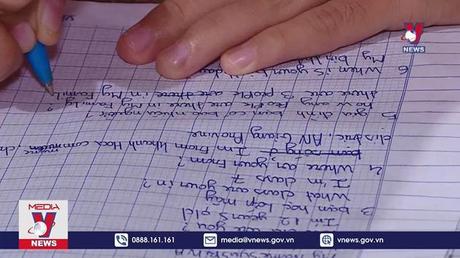 VNEWS
My name
are you?
I'm 12 years old
3 bạn học lớp mấy
What class are your in?
I'm in class 7
4 Where are your from?
I'm From Khánh Hòa commune,
district, AN Giang Province
5 gia đình bạn có bao nhiêu người?
How many People are there in My Family
there are 3 people are there in My Family
6 When is your day
My
MEDIA
VNEWS
0888.161.161 media@vnews.gov.vn vnews.gov.vn